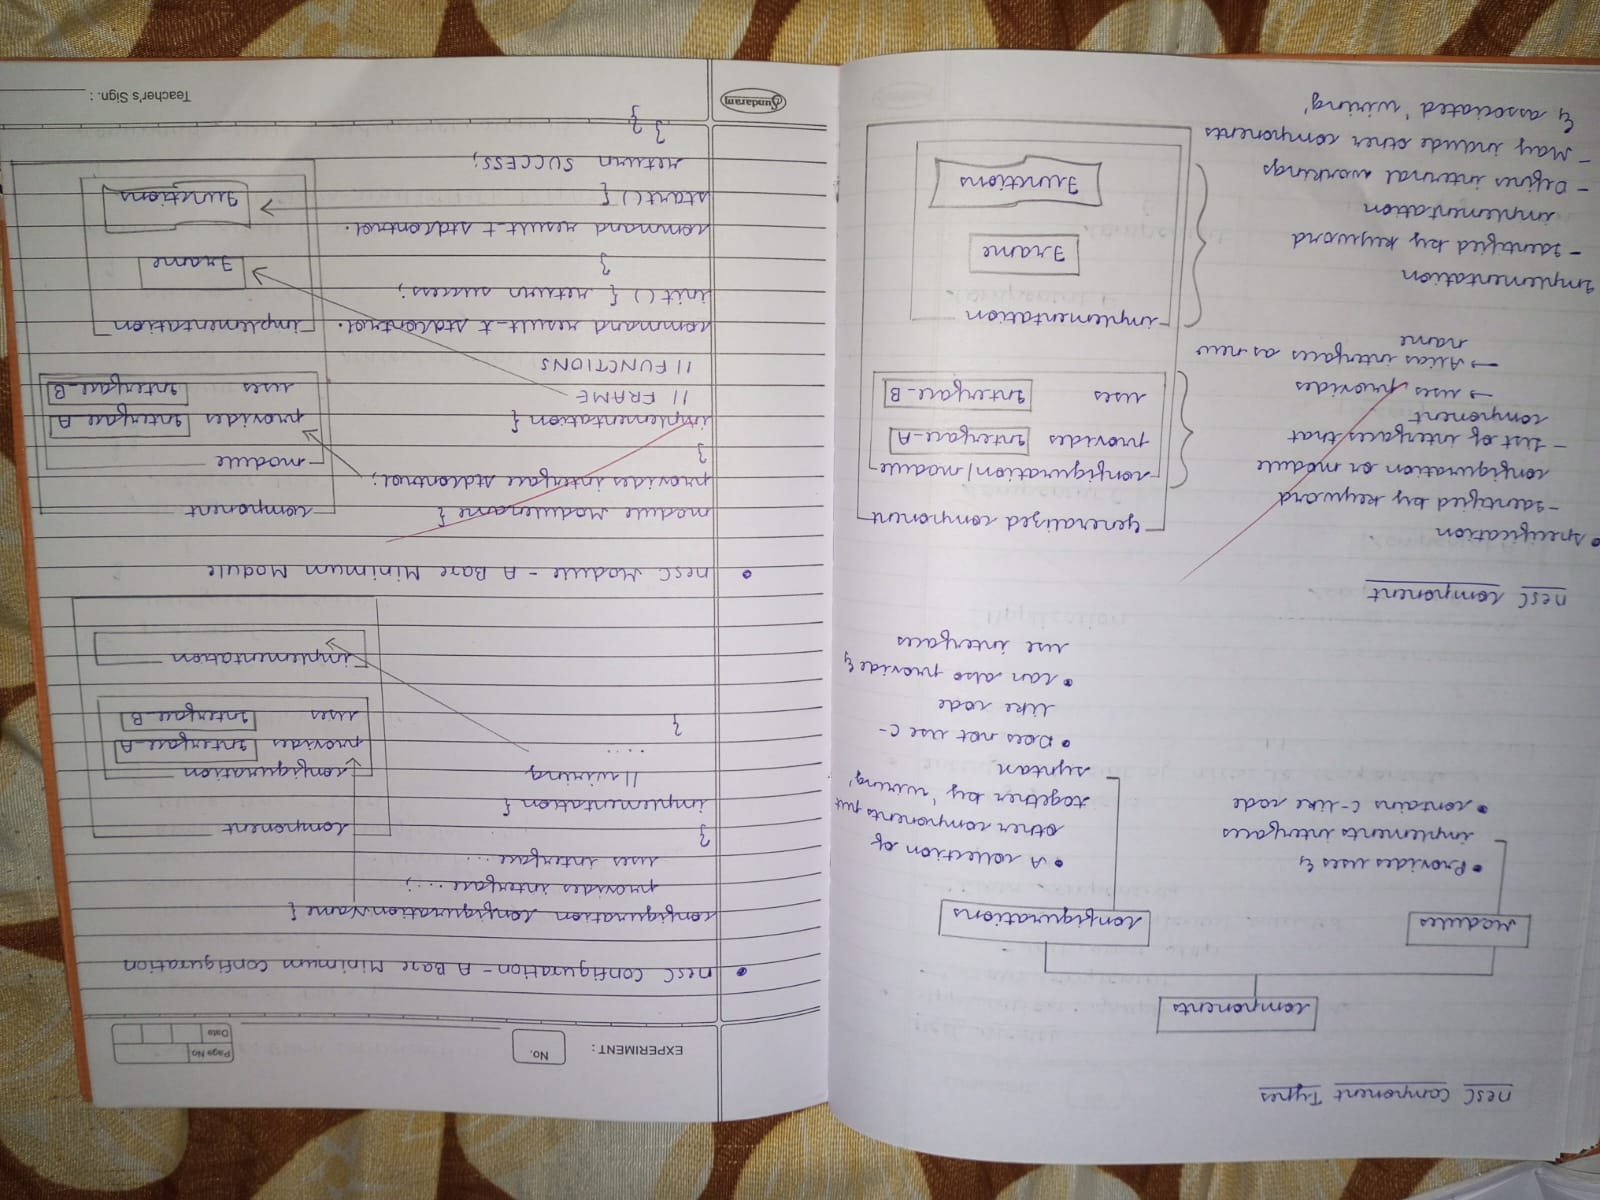 nesC Component Types
Components
Modules
• Provides uses &
implements interfaces
• contains C-like code
Configurations
• A collection of
other components put
together by 'wiring'
syntan
• Does not use C-
like code
• Can also provide &
use interfaces
nesC Component
• Specification
- Identified by keyword
configuration or module
- List of interfaces that
component
→ uses, provides
→ Alias interfaces as new
name
Implementation
- Identified by keyword
implementation
- Defines internal workings
- May include other components
& associated 'wiring'
Generalized component
configuration/module
provides Interface-A
uses Interface-B
implementation
Frame
Functions
EXPERIMENT :
No.
Page No.
Date
• nesC Configuration - A Bare Minimum Configuration
configuration ConfigurationName {
provides interface ....;
uses interface ....
}
implementation {
// wiring
....
}
component
configuration
provides Interface-A
uses Interface-B
implementation
• nesC Module - A Bare Minimum Module
module Modulename {
provides interface stdcontrol;
}
implementation {
// FRAME
// FUNCTIONS
command result_t stdcontrol.
init() { return success;
}
command result_t stdcontrol.
start() {
return SUCCESS;
} }
component
module
provides Interface-A
uses Interface-B
implementation
Frame
Functions
Sundaram
Teacher's Sign. :